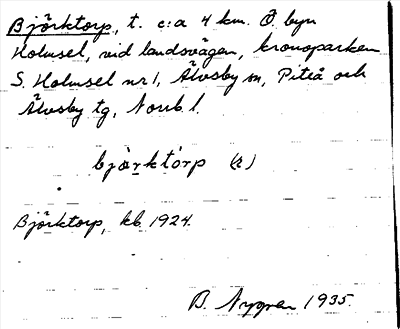 Björktorp, t. c:a 4 km. Ö. byn
Holmsel, vid landsvägen, kronoparken
S. Holmsel nr 1, Älvsby sn, Piteå och
Älvsby tg, Norrb. l.
bjö̀rktórp (2)
Björktorp, kb. 1924.
B. Nygren 1935.